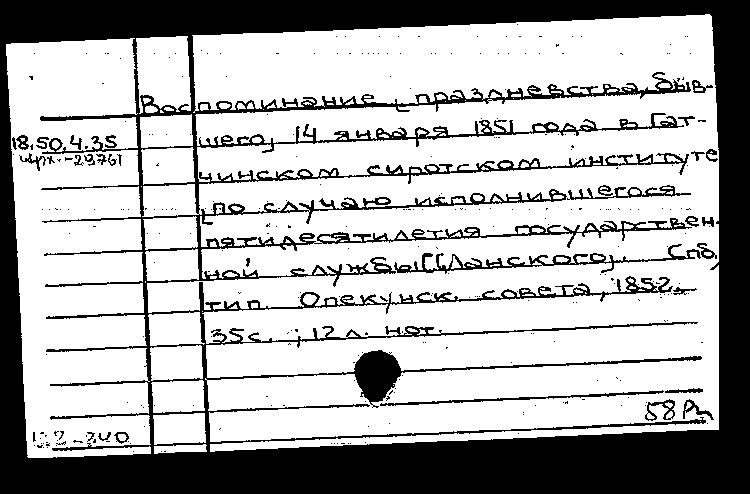 Воспоминание [празднества, быв-
18.50.4.35
шего] 14 января 1851 года в Гат-
инх.-29761
чинском сиротском институте
[по случаю исполнившегося
пятидесятилетия государствен-
ной службы [Ланского]. Спб,
тип. Опекунск. совета, 1852.
35 с. ; 12 л. нот.
58 Рг